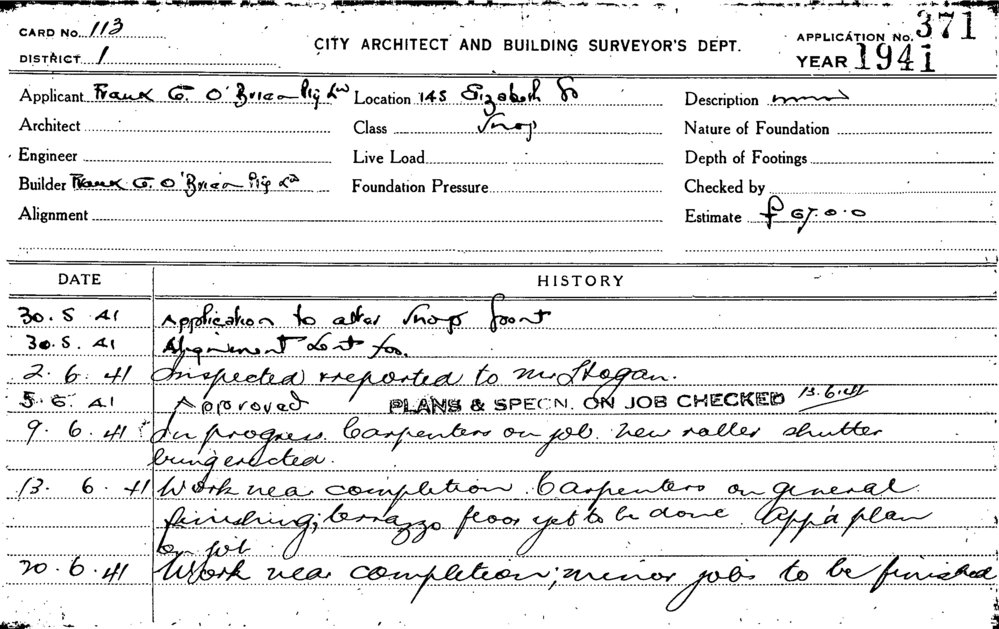 CARD No. 113
DISTRICT 1
CITY ARCHITECT AND BUILDING SURVEYOR'S DEPT.
APPLICATION No. 371
YEAR 1941
Applicant Frank G. O'Brien Pty Ld Location 145 Elizabeth St Description
Architect Class Shop Nature of Foundation
Engineer Live Load Depth of Footings
Builder Frank G. O'Brien Pty Ld Foundation Pressure Checked by
Alignment Estimate £ 67.0.0
DATE HISTORY
30.5.41 Application to alter shop front
30.5.41 Alignment sent for.
2.6.41 Inspected & reported to Mr Hogan.
5.6.41 Approved PLANS & SPECN. ON JOB CHECKED 13.6.41
9.6.41 In progress. Carpenters on job. New roller shutter
being erected.
13.6.41 Work near completion. Carpenters on general
finishing; terrazzo floor yet to be done App'd plan
on job
20.6.41 Work near completion; minor jobs to be finished